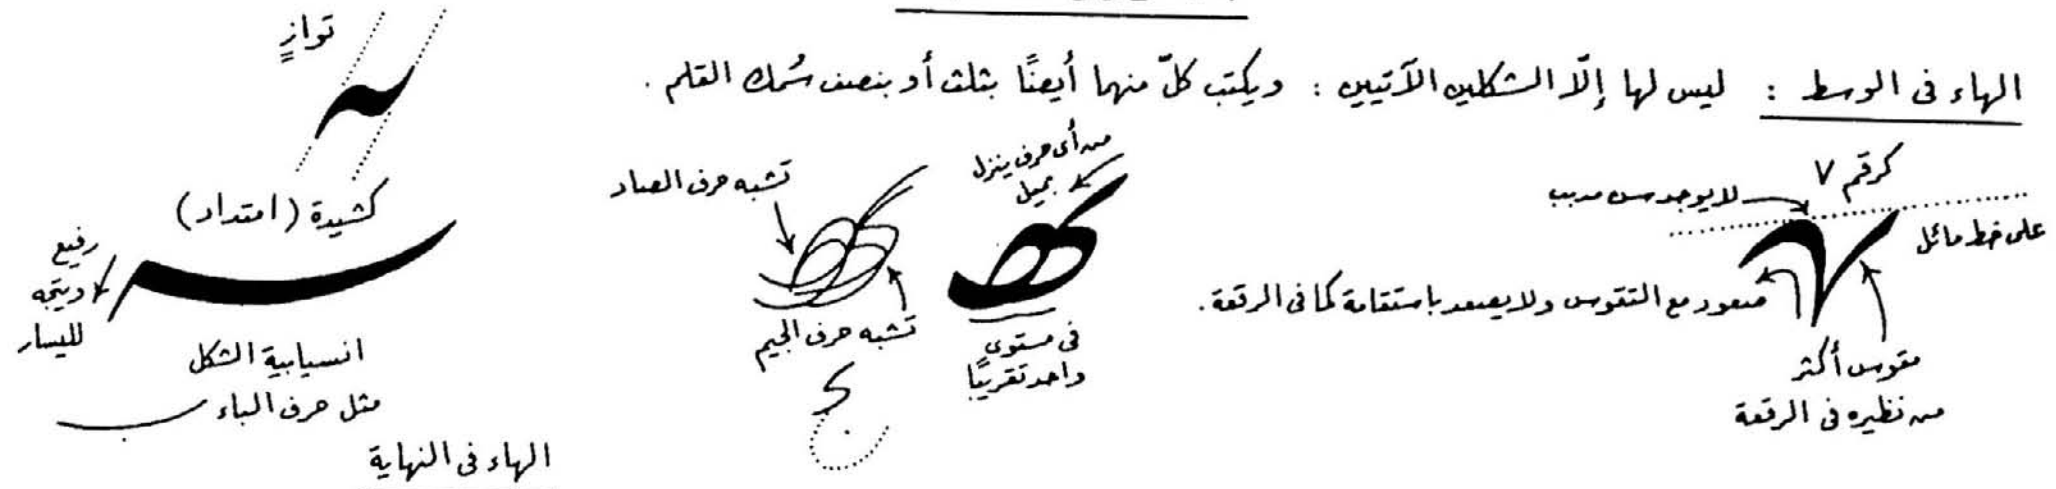 الهاء فى الوسط : ليس لها إلّا الشكلين الآتيين : ويكتب كلّ منهما أيضًا بثلث أو بنصف سُمك القلم .
كرقم ٧
لا يوجد سن مدبب
على خط مائل
صعود مع التقوس ولا يصعد باستقامة كما فى الرقعة .
مقوس أكثر
من نظيره فى الرقعة
من أى حرف ينزل
بميل
فى مستوى
واحد تقريبًا
تشبه حرف الصاد
تشبه حرف الجيم
توازٍ
كشيدة (امتداد)
رفيع
ويتجه
لليسار
انسيابية الشكل
مثل حرف الباء
الهاء فى النهاية